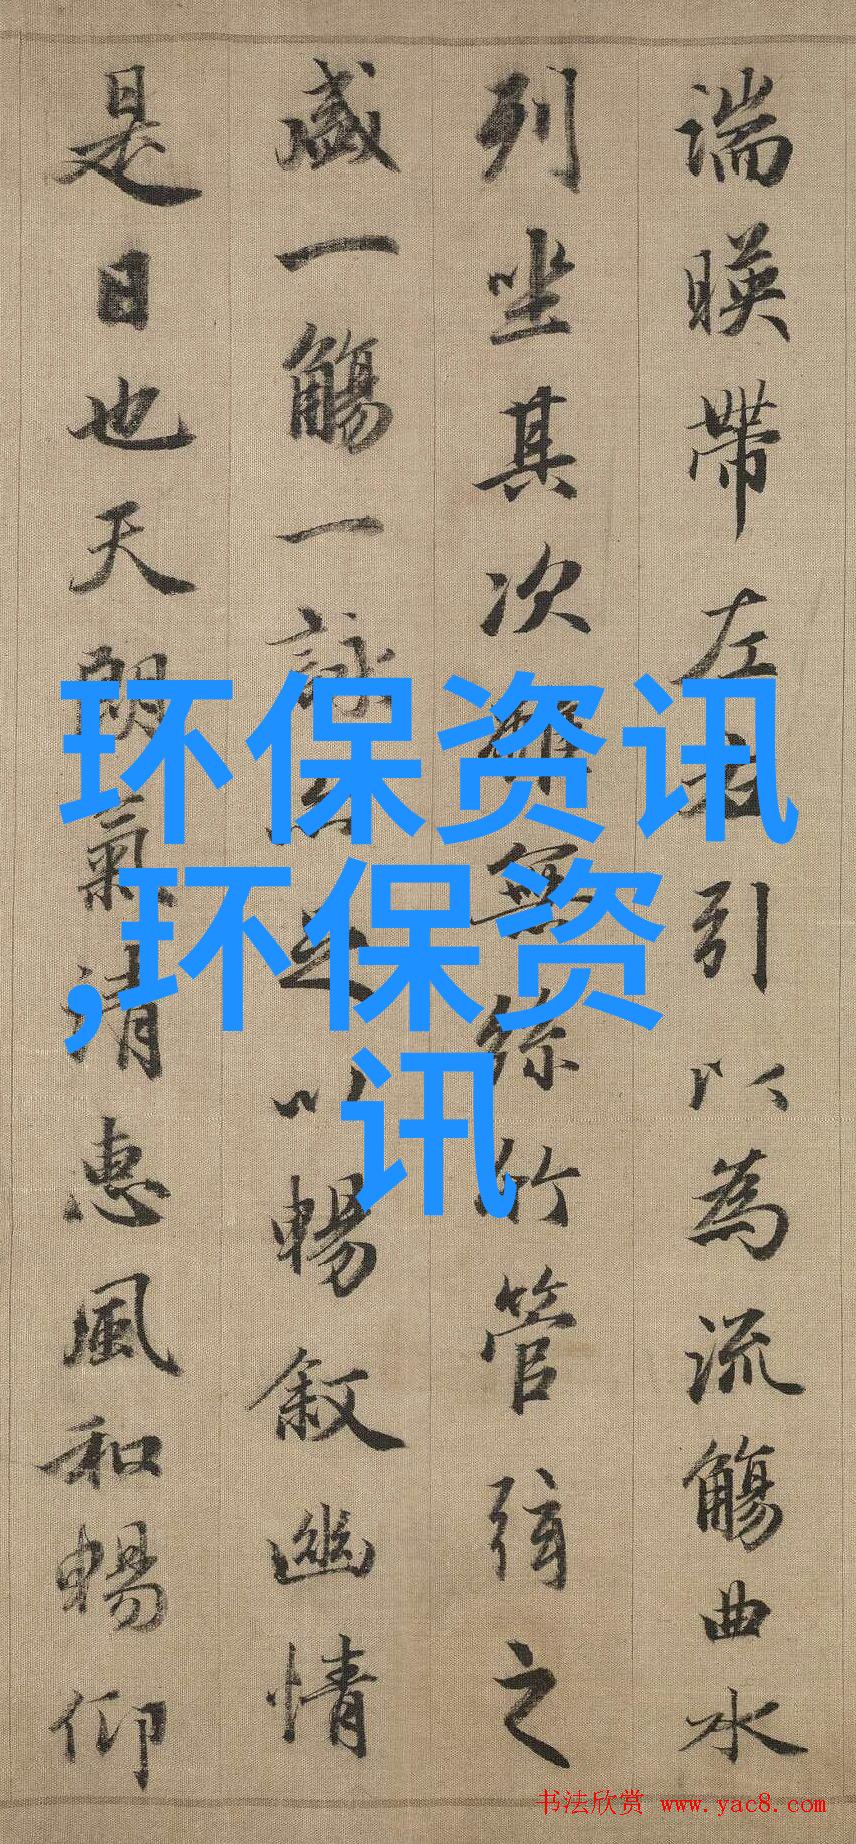 湍暎帶左右引以為流觴曲水
列坐其次雖無絲竹管弦之
盛一觴一詠亦足以暢叙幽情
是日也天朗氣清惠風和暢仰
环保资讯
,环保资
讯
书法欣赏 www.yac8.com